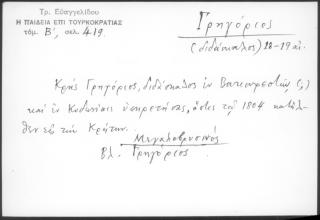 Τρ. Εὐαγγελίδου
Η ΠΑΙΔΕΙΑ ΕΠΙ ΤΟΥΡΚΟΚΡΑΤΙΑΣ
τόμ. Β', σελ. 419.
Γρηγόριος
(διδάσκαλος) 18-19 αἰ.
Κρὴς Γρηγόριος, διδάσκαλος ἐν Βουκουρεστίῳ (;)
καὶ ἐν Κυδωνίαις ὑπηρετήσας, ὅστις τῷ 1804 κατῆλ-
θεν εἰς τὴν Κρήτην.
Μεγαλοβρυσινὸς
Βλ. Γρηγόριος